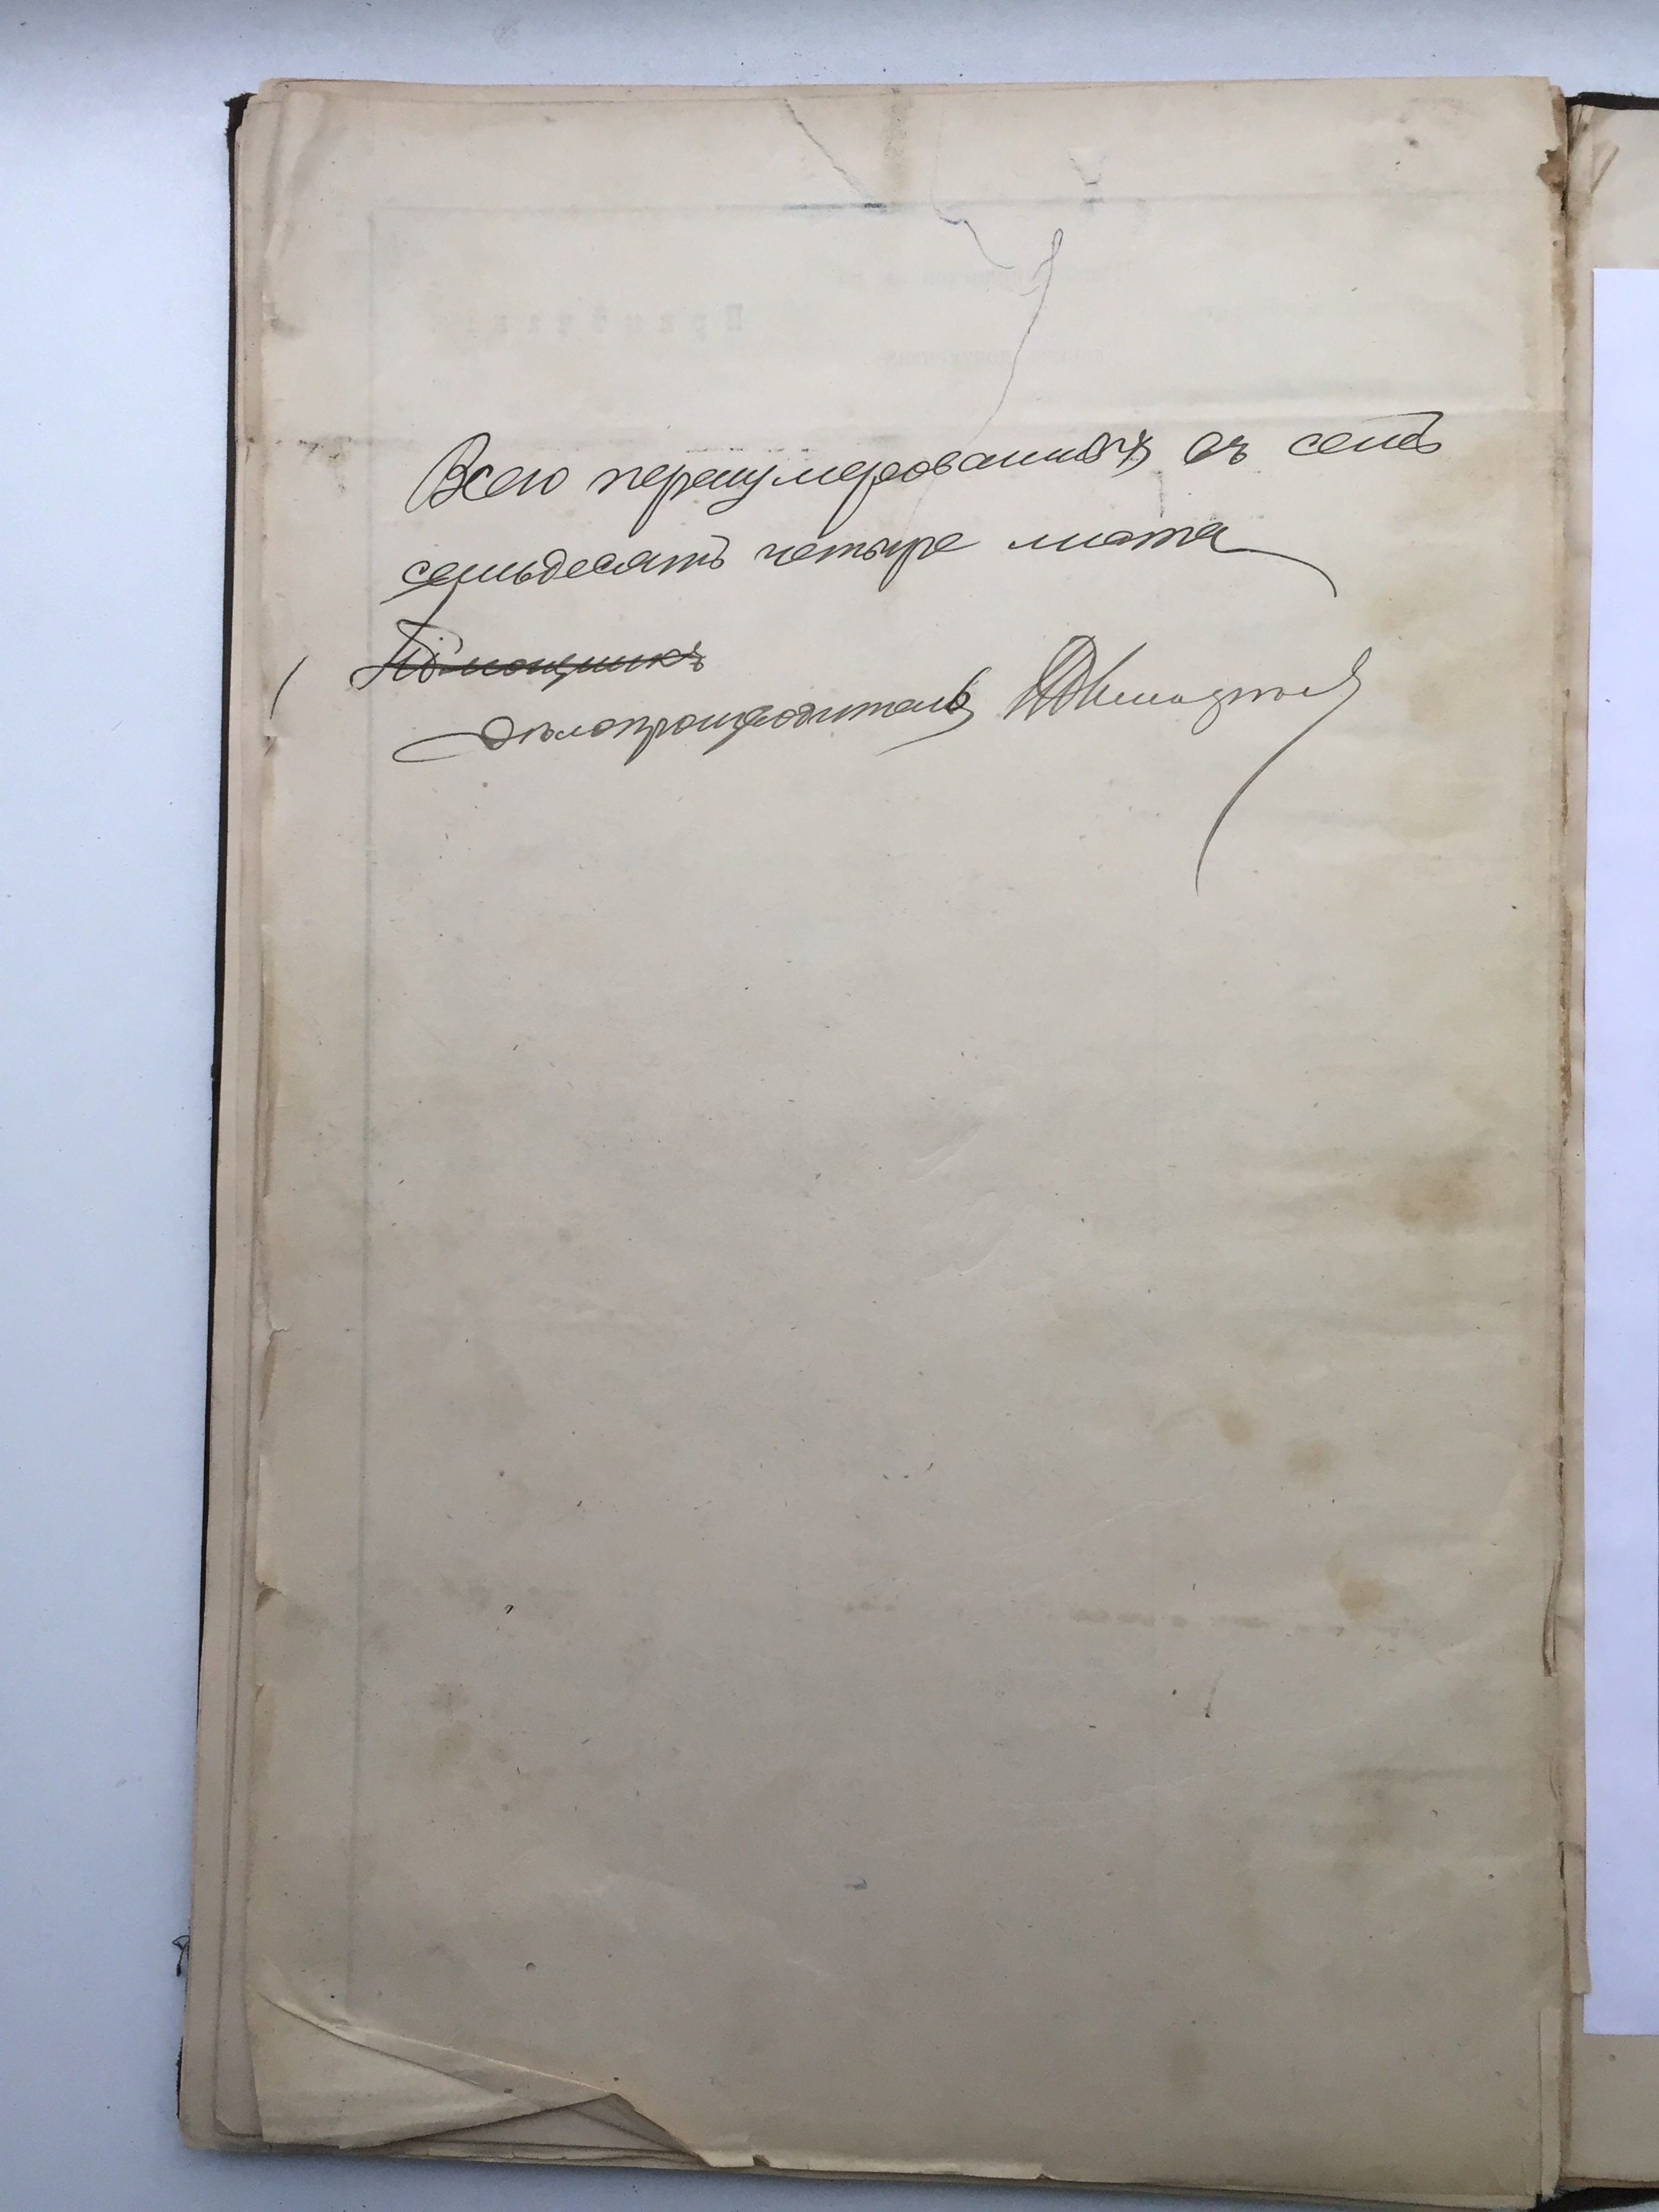 Всего перенумерованныхъ въ семъ
семьдесятъ четыре листа
Помощникъ
Дѣлопроизводитель